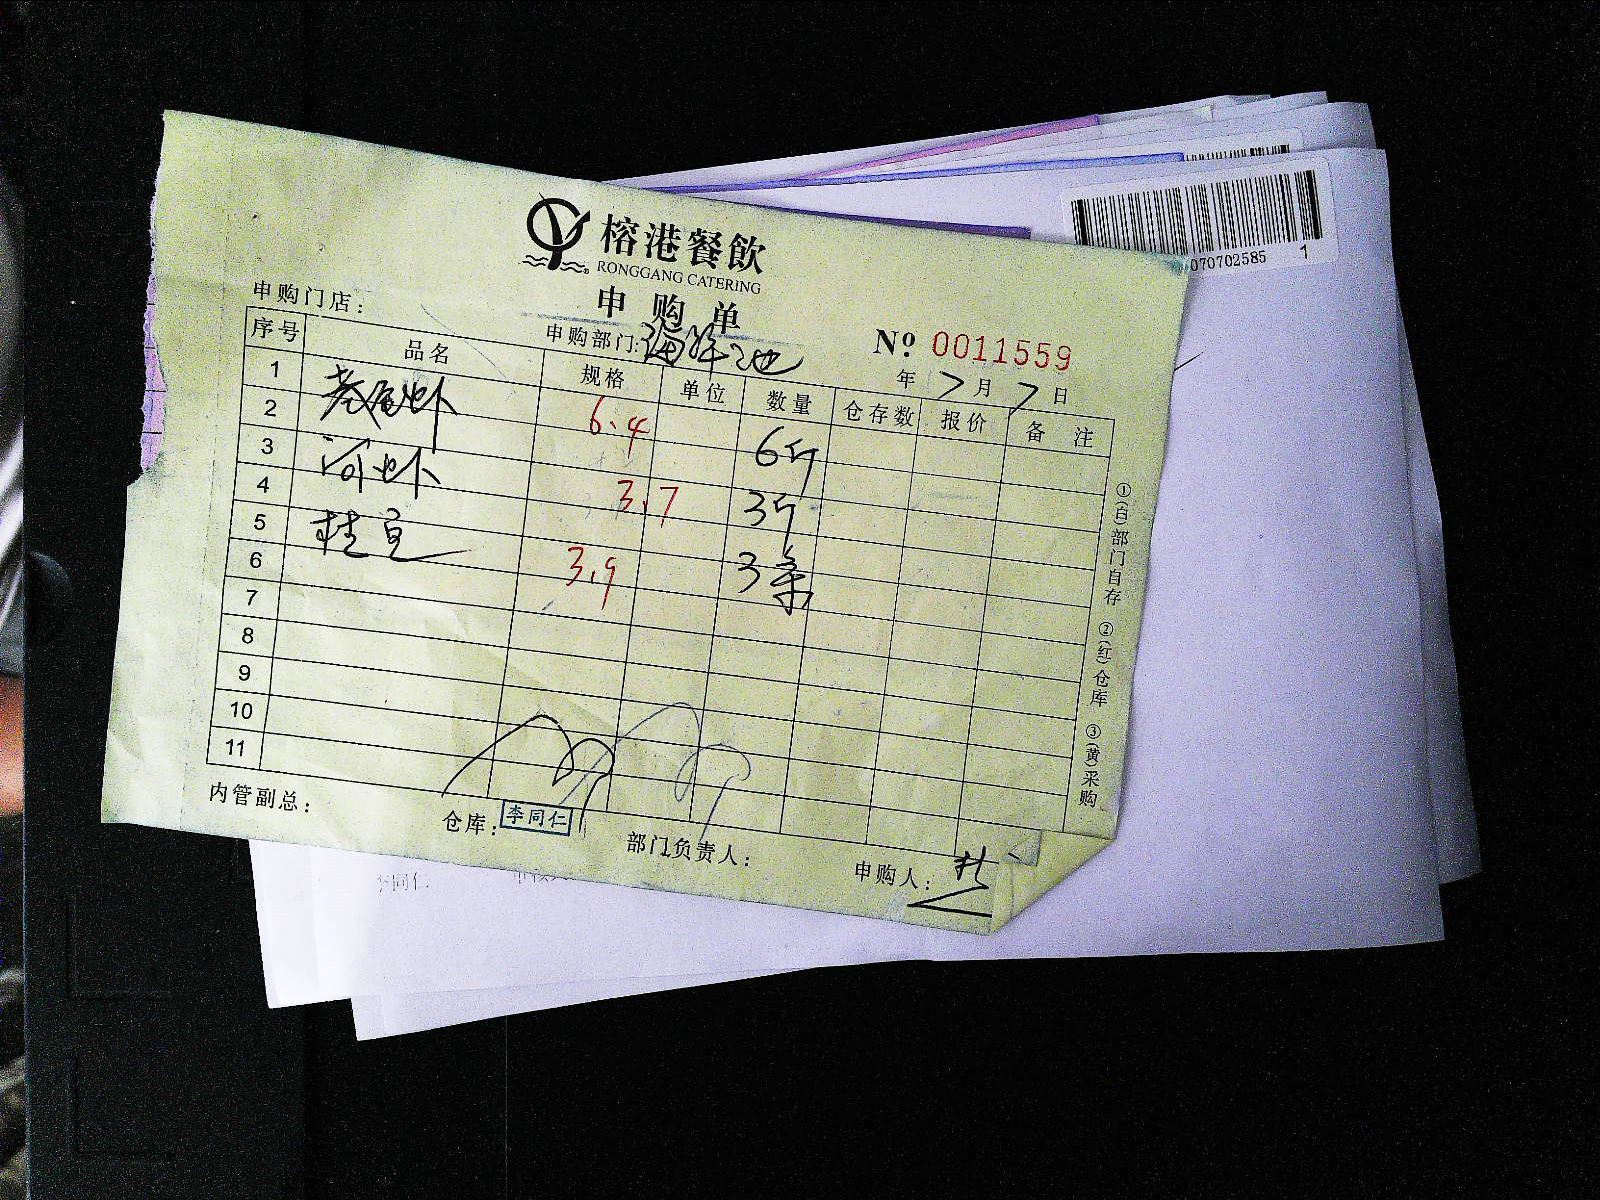 榕港餐飲
RONGGANG CATERING
申购单
申购门店：
申购部门:海鲜池
№ 0011559
年 7 月 7 日
序号 品名 规格 单位 数量 仓存数 报价 备注
1
2 虾 6.4 6斤
3
4 河虾 3.7 3斤
5
6 桂鱼 3.9 3条
7
8
9
10
11
①(白)部门自存 ②(红)仓库 ③(黄)采购
内管副总：
仓库：李同仁
部门负责人：
申购人：
070702585 1
同仁